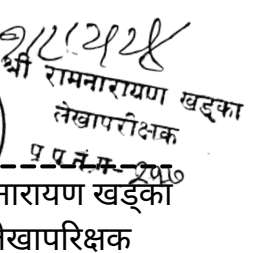 श्री रामनारायण खड्का
लेखापरीक्षक
प्र प नं.
नारायण खड्का
लेखापरिक्षक